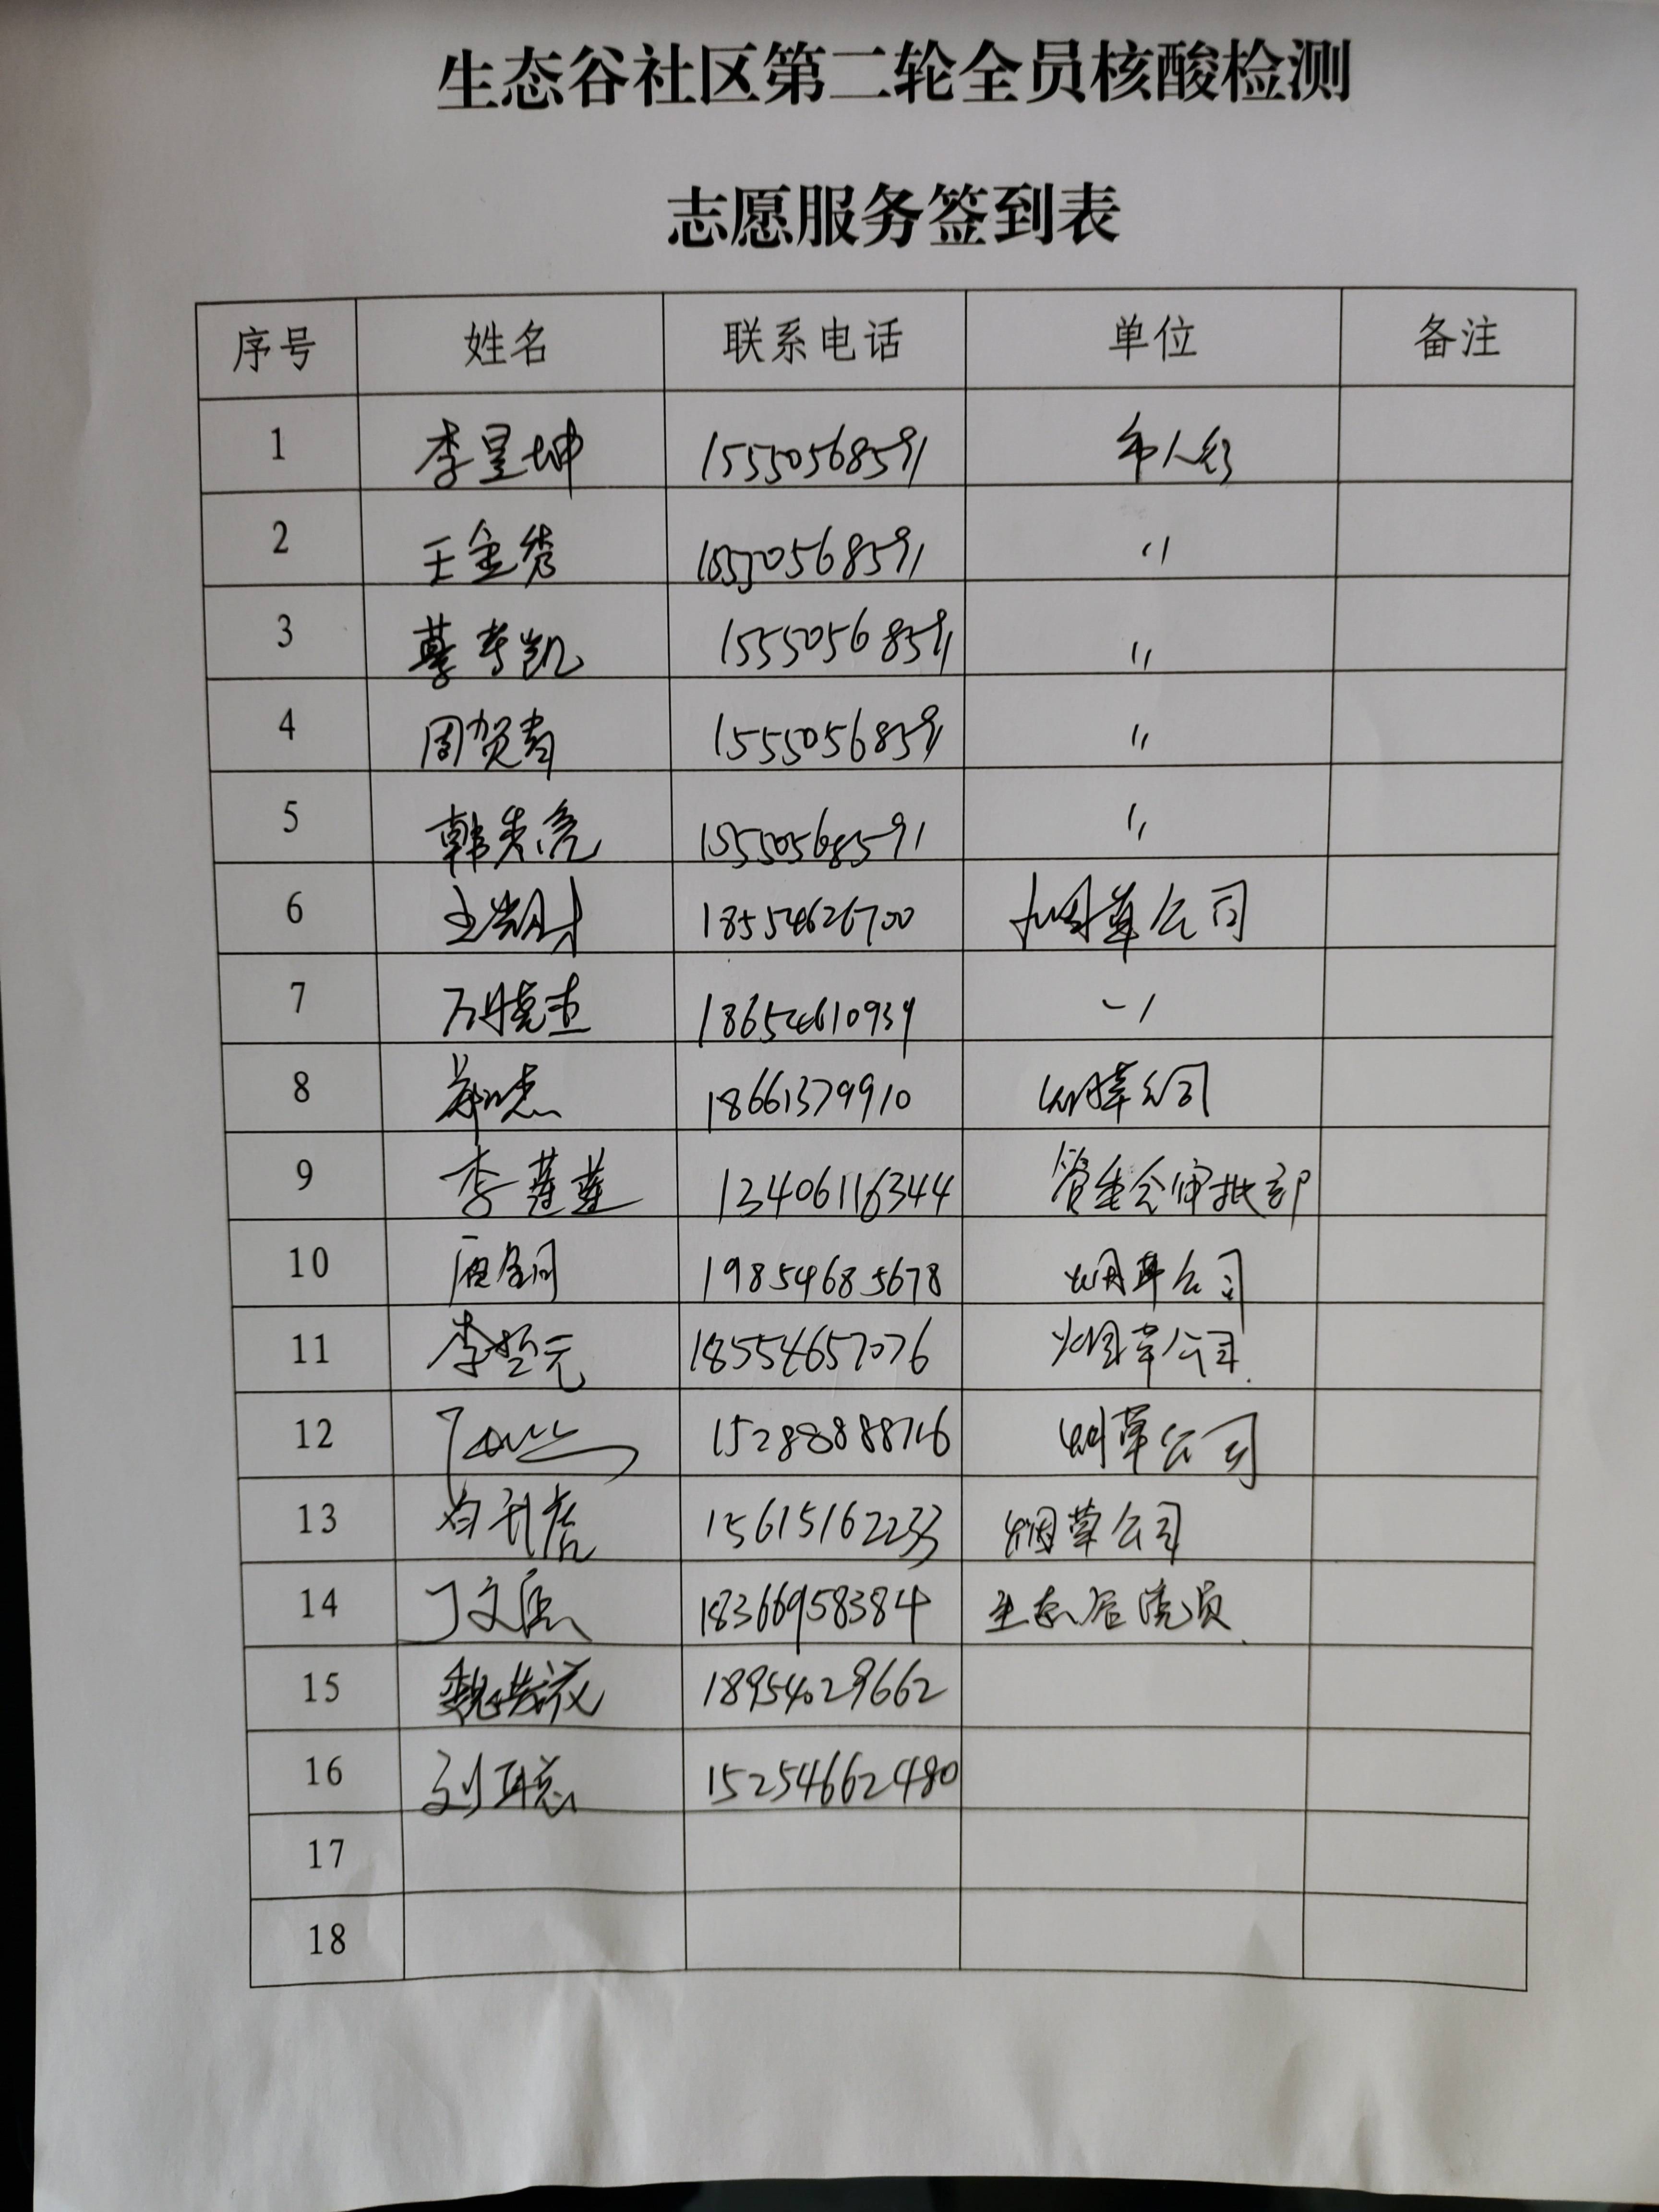 生态谷社区第二轮全员核酸检测
志愿服务签到表
序号 姓名 联系电话 单位 备注
1 李昱坤 15550568591 市人行
2 王金秀 15550568591 〃
3 15550568591 〃
4 周贺 15550568591 〃
5 韩秀亮 15550568591 〃
6 18554626700 烟草公司
7 18654610939
8 18661379910 烟草公司
9 李莲莲 13406116344 管委会审批部
10 19854685678 烟草公司
11 李哲元 18554657076 烟草公司
12 15288888716 烟草公司
13 15615162233 烟草公司
14 丁文 18366958384 生态谷党员
15 魏 18954029662
16 刘聪 15254662480
17
18